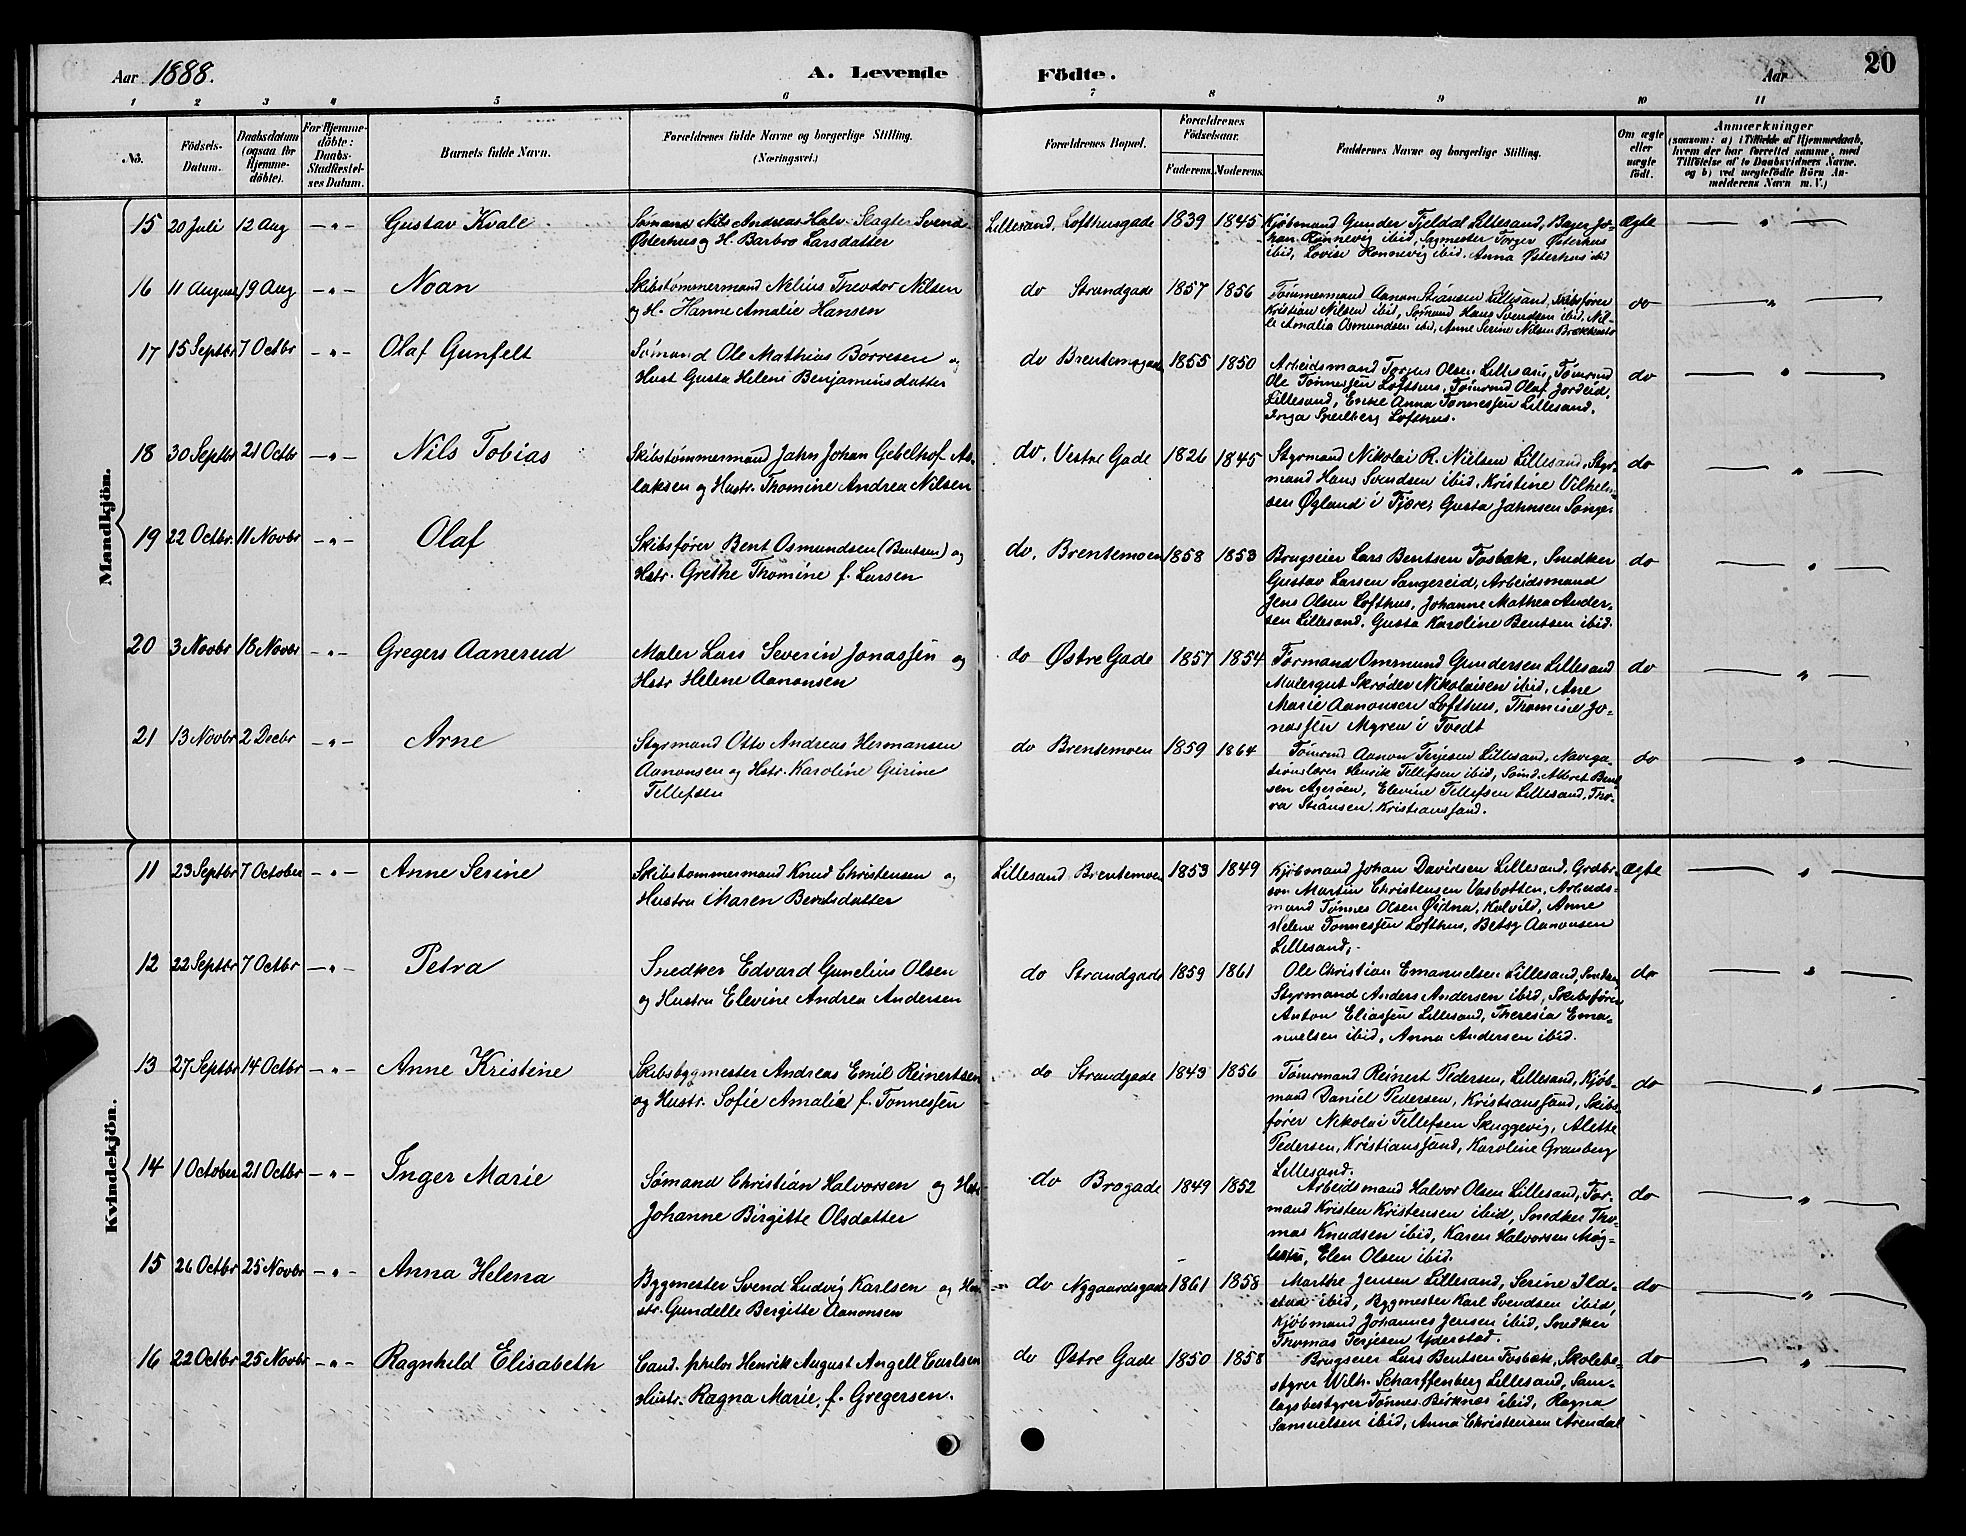 Aar 1888.
A. Levende Födte.
Aar 20
1 2 3 4 5 6 7 8 9 10 11
No.
Födsels-Datum.
Daabsdatum (ogsaa for Hjemme-döbte).
For Hjemme-döbte: Daabs-Stadfæstel-ses Datum.
Barnets fulde Navn.
Forældrenes fulde Navne og borgerlige Stilling. (Næringsvei.)
Forældrenes Bopæl.
Forældrenes Födselsaar.
Faderens. Moderens.
Faddernes Navne og borgerlige Stilling.
Om ægte eller uægte födt.
Anmærkninger
(saasom: a) i Tilfælde af Hjemmedaab, hvem der har forrettet samme, med Tilföielse af to Daabsvidners Navne. og b) ved uægtefödte Börn An-melderens Navn m. V.)
Mandkjön.
15 20 Juli 12 Aug -„- Gustav Kvale
Sømand Nils Andreas Halv. Svend
Østerhus og H. Barbro Larsdatter
Lillesand, Lofthusgade 1839 1845
Kjøbmand Gunder Fjeldal Lillesand, Bager Jo-
han Rønnevig ibid, Sagmester Torger Østerhus
ibid, Lovise Rønnevig ibid, Anna Østerhus ibid
Ægte — „ —
16 11 August 19 Aug -„- Noan
Skibstømmermand Nelius Theodor Nilsen
og H. Hanne Amalie Hansen
do Strandgade 1857 1856
Tømmermand Aanon Stiansen Lillesand, Skibsfører
Kristian Nilsen ibid, Sømand Hans Svendsen ibid, Nil-
le Amalia Osmundsen ibid, Anne Serine Nilsen Brækkestø
do — „ —
17 15 Septbr 7 Octbr -„- Olaf Gunfelt
Sømand Ole Mathias Børresen og
Hust Gusta Helene Benjaminsdatter
do Brentemogade 1855 1850
Arbeidsmand Torjus Olsen Lillesand, Tømrmd
Ole Tønnessen Lofthus, Tømrmd Olaf Jordeid,
Lillesand, Enke Anna Tønnessen Lillesand,
Inga Lofthus.
do — „ —
18 30 Septbr 21 Octbr -„- Nils Tobias
Skibstømmermand Jahn Johan Gebelhof As-
laksen og Hustr. Thomine Andrea Nilsen
do, Vestre Gade 1826 1845
Styrmand Nikolai R. Nielsen Lillesand, Styr-
mand Hans Svendsen ibid, Kristine Vilhelm-
sen Øgland i Fjære, Gusta Jahnsen Songe
do — „ —
19 22 Octbr. 11 Novbr -„- Olaf
Skibsfører Bent Osmundsen (Bentsen) og
Hstr. Grethe Thomine f. Larsen
do, Brentemoen 1858 1853
Brugseier Lars Bentsen Fosbæk, Snedker
Gustav Larsen Sangereid, Arbeidsmand
Jens Olsen Lofthus, Johanne Mathea Ander-
sen Lillesand, Gusta Karoline Bentsen ibid.
do — „ —
20 3 Novbr 18 Novbr -„- Gregers Aanerud
Maler Lars Severin Jonassen og
Hstr Helene Aanonsen
do Østre Gade 1857 1854
Formand Ommund Gundersen Lillesand
Malergut Skrøder Nikolaisen ibid, Ane
Marie Aanonsen Lofthus, Thomine Jo-
nassen Myren i Tvedt
do — „ —
21 13 Novbr 2 Decbr -„- Arne
Styrmand Otto Andreas Hermansen
Aanonsen og Hstr. Karoline Gurine
Tellefsen
do Brentemoen 1859 1864
Tømrmd Aanon Terjesen Lillesand, Naviga-
tionslærer Henrik Tellefsen ibid, Sømd. Albret Bent
sen Agerøen, Elevine Tellefsen Lillesand, Tho-
ra Stiansen, Kristianssand.
do — „ —
Kvindekjön.
11 23 Septbr 7 October -„- Anne Serine
Skibstømmermand Knud Christensen og
Hustru Maren Berntsdatter
Lillesand Brentemoen 1853 1849
Kjøbmand Johan Davidsen Lillesand, Grdbr-
søn Martin Christensen Vasbotten, Arbeids-
mand Tønnes Olsen Kalvild, Anne
Helene Tønnessen Lofthus, Betsy Aanonsen
Lillesand,
Ægte — „ —
12 22 Septbr 7 Octbr -„- Petra
Snedker Edvard Gunelius Olsen
og Hustru Elevine Andrea Andersen
do Strandgade 1859 1861
Ole Christian Emanuelsen Lillesand, Snedker
Styrmand Anders Andersen ibid, Skibsfører
Anton Eliassen Lillesand, Theresia Ema-
nuelsen ibid, Anna Andersen ibid.
do — „ —
13 27 Septbr 14 Octbr -„- Anne Kristine
Skibsbygmester Andreas Emil Reinertsen
og Hustr. Sofie Amalie f. Tønnessen
do Strandgade 1849 1856
Tømrmand Reinert Pedersen, Lillesand, Kjøb-
mand Daniel Pedersen, Kristianssand, Skibs-
fører Nikolai Tellefsen Skuggevig, Alette
Pedersen, Kristianssand, Karoline Granberg
Lillesand.
do — „ —
14 1 October 21 Octbr -„- Inger Marie
Sømand Christian Halvorsen og Hstr
Johanne Birgitte Olsdatter
do Brogade 1849 1852
Arbeidsmand Halvor Olsen Lillesand, For-
mand Kristen Kristensen ibid, Snedker Tho-
mas Knudsen ibid, Karen Halvorsen Møg-
lestu, Elen Olsen ibid.
do — „ —
15 26 Octbr 25 Novbr -„- Anna Helena
Bygmester Svend Ludvig Karlsen og Hu-
str. Gundelle Bergitte Aanonsen
do Nygaardsgade 1861 1858
Marthe Jensen Lillesand, Serine Ild-
stad ibid, Bygmester Karl Svendsen ibid,
Kjøbmand Johannes Jensen ibid, Snedker
Thomas Terjesen Yderstad.
do — „ —
16 22 Octbr 25 Novbr -„- Ragnhild Elisabeth
Cand. philos Henrik August Angell Carlsen
Hustr. Ragna Marie, f. Gregersen.
do Østre Gade 1850 1858
Brugseier Lars Bentsen Fosbæk, Skolebe-
styrer Wilh. Scharffenberg Lillesand, Sam-
lagsbestyrer Tønnes Birknæs ibid, Ragna
Samuelsen ibid, Anna Christensen Arendal
do — „ —